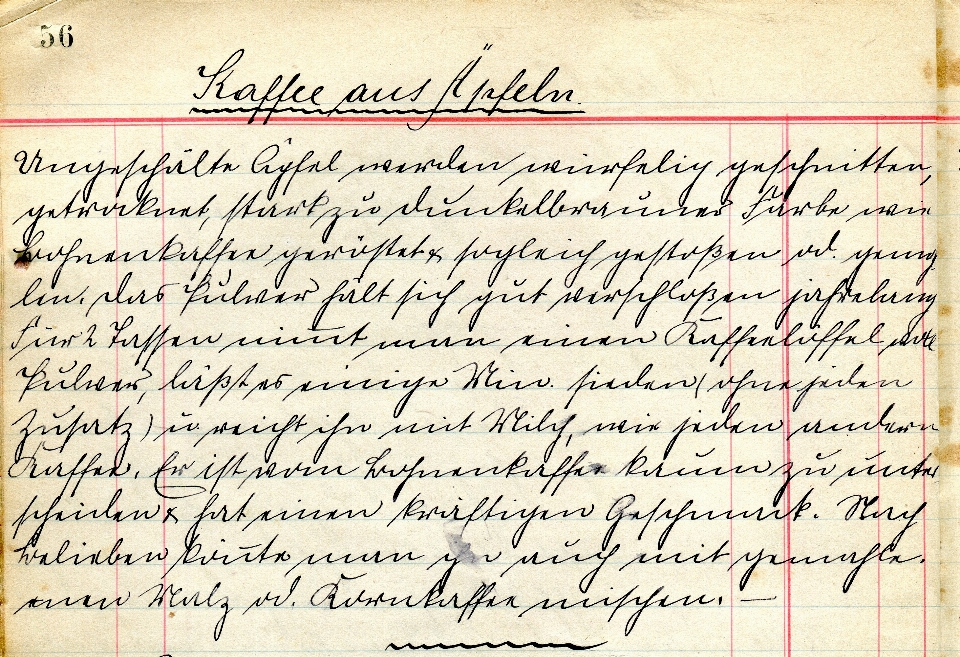 56
Kaffee aus Äpfeln.
Ungeschälte Äpfel werden würfelig geschnitten,
getrocknet, stark zu dunkelbrauner Farbe wie
Bohnenkaffee geröstet & sogleich gestoßen od. gema
len. Das Pulver hält sich gut verschloßen jahrelang
Für 2 Tassen nim̅t man einen Kaffeelöffel voll
Pulver, läßt es einige Min. sieden (ohne jeden
Zusatz) u reicht ihn mit Milch, wie jeden andern
Kaffee. Er ist vom Bohnenkaffee kaum zu unter
scheiden & hat einen kräftigen Geschmack. Nach
Belieben kön̅te man ihn auch mit gemahle.
nen Malz od. Kornkaffee mischen. —